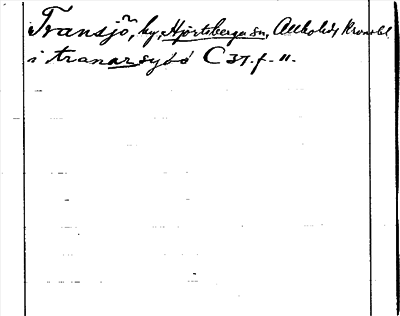 Transjö, by, Hjortsberga sn, Allbo hd, Kronobl.
i tranarsyóó C 37. f. 11.